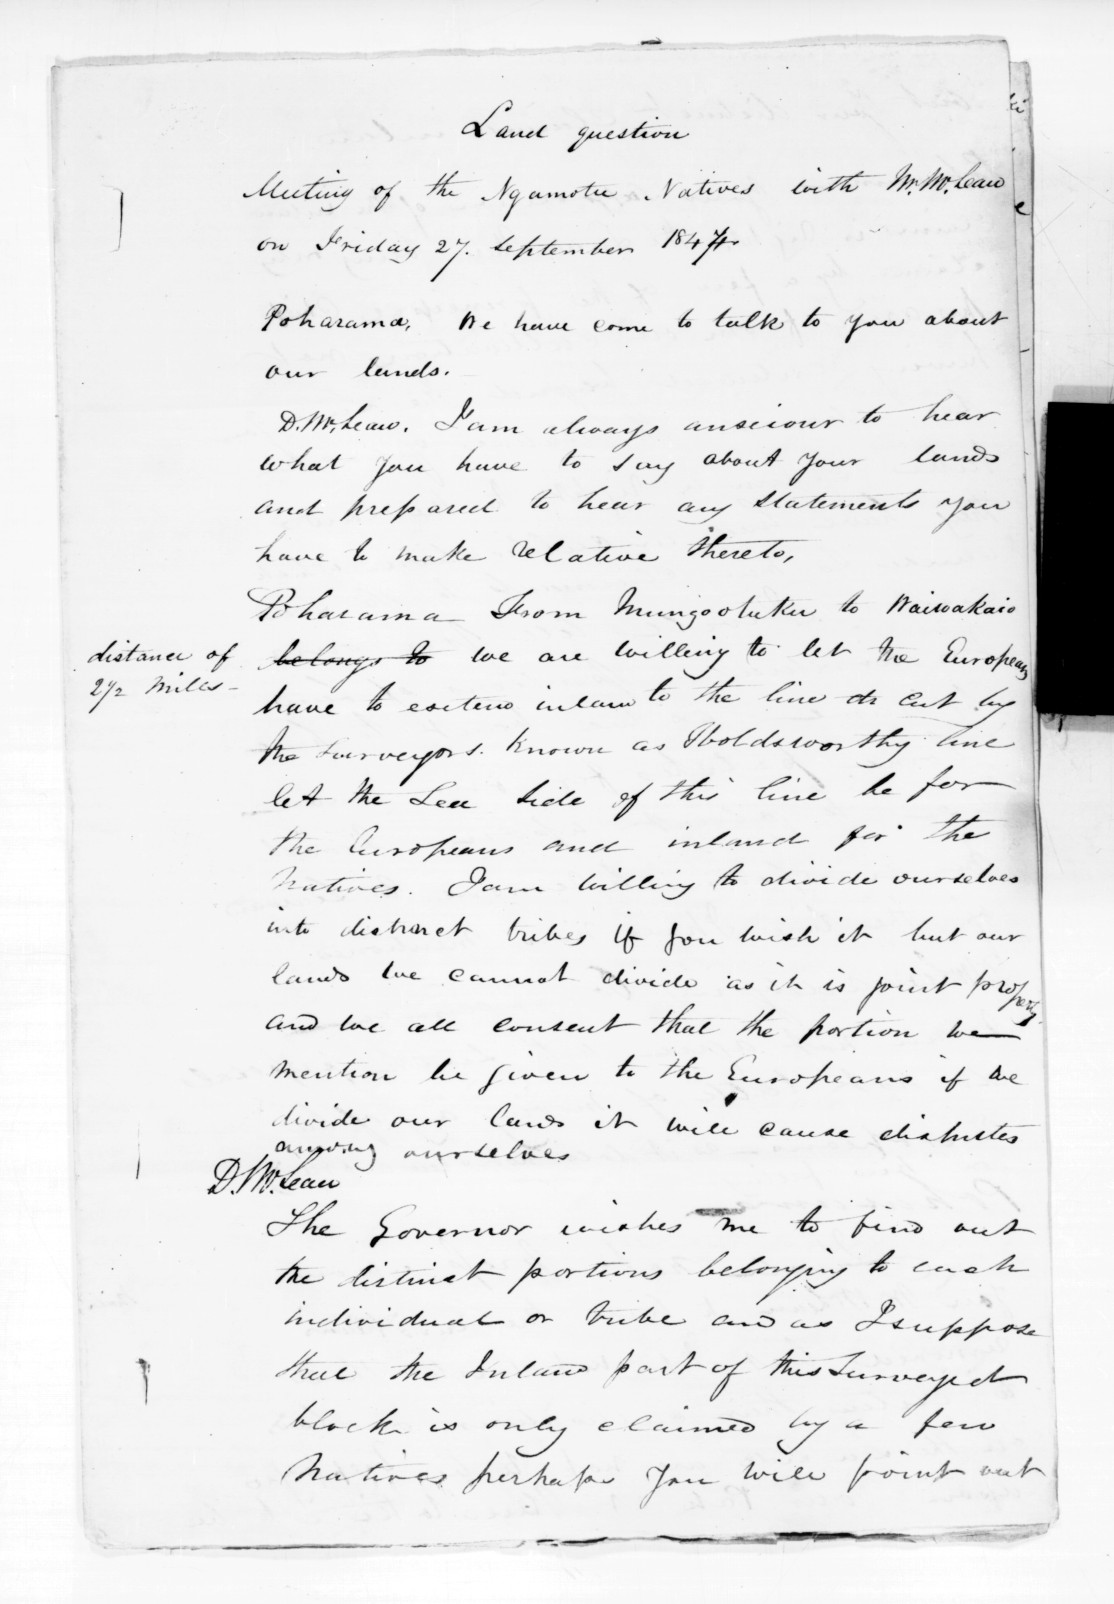 Land question
Meeting of the Ngamotu Natives with Mr. McLean
on Friday 27. September 1844
Poharama. We have come to talk to you about
our lands.
D. McLean. I am always anxious to hear
what you have to say about your lands
and prepared to hear any statements you
have to make relative thereto,
Poharama From Mungootuku to Waiwakaio
distance of
2 1/2 miles -
belongs to we are willing to let the Europeans
have to extend inland to the line cut by
the Surveyors. Known as Wholdsworthy line
let the Sea Side of this line be for
the Europeans and inland for the
Natives. I am willing to divide ourselves
into distinct tribes if you wish it but our
lands we cannot divide as it is joint property
and we all consent that the portion we
mention be given to the Europeans if we
divide our lands it will cause disputes
among ourselves
D. McLean
The Governor wishes me to find out
the distinct portions belonging to each
individual or tribe and as I suppose
that the Inland part of this Surveyed
block is only claimed by a few
Natives perhaps you will point out